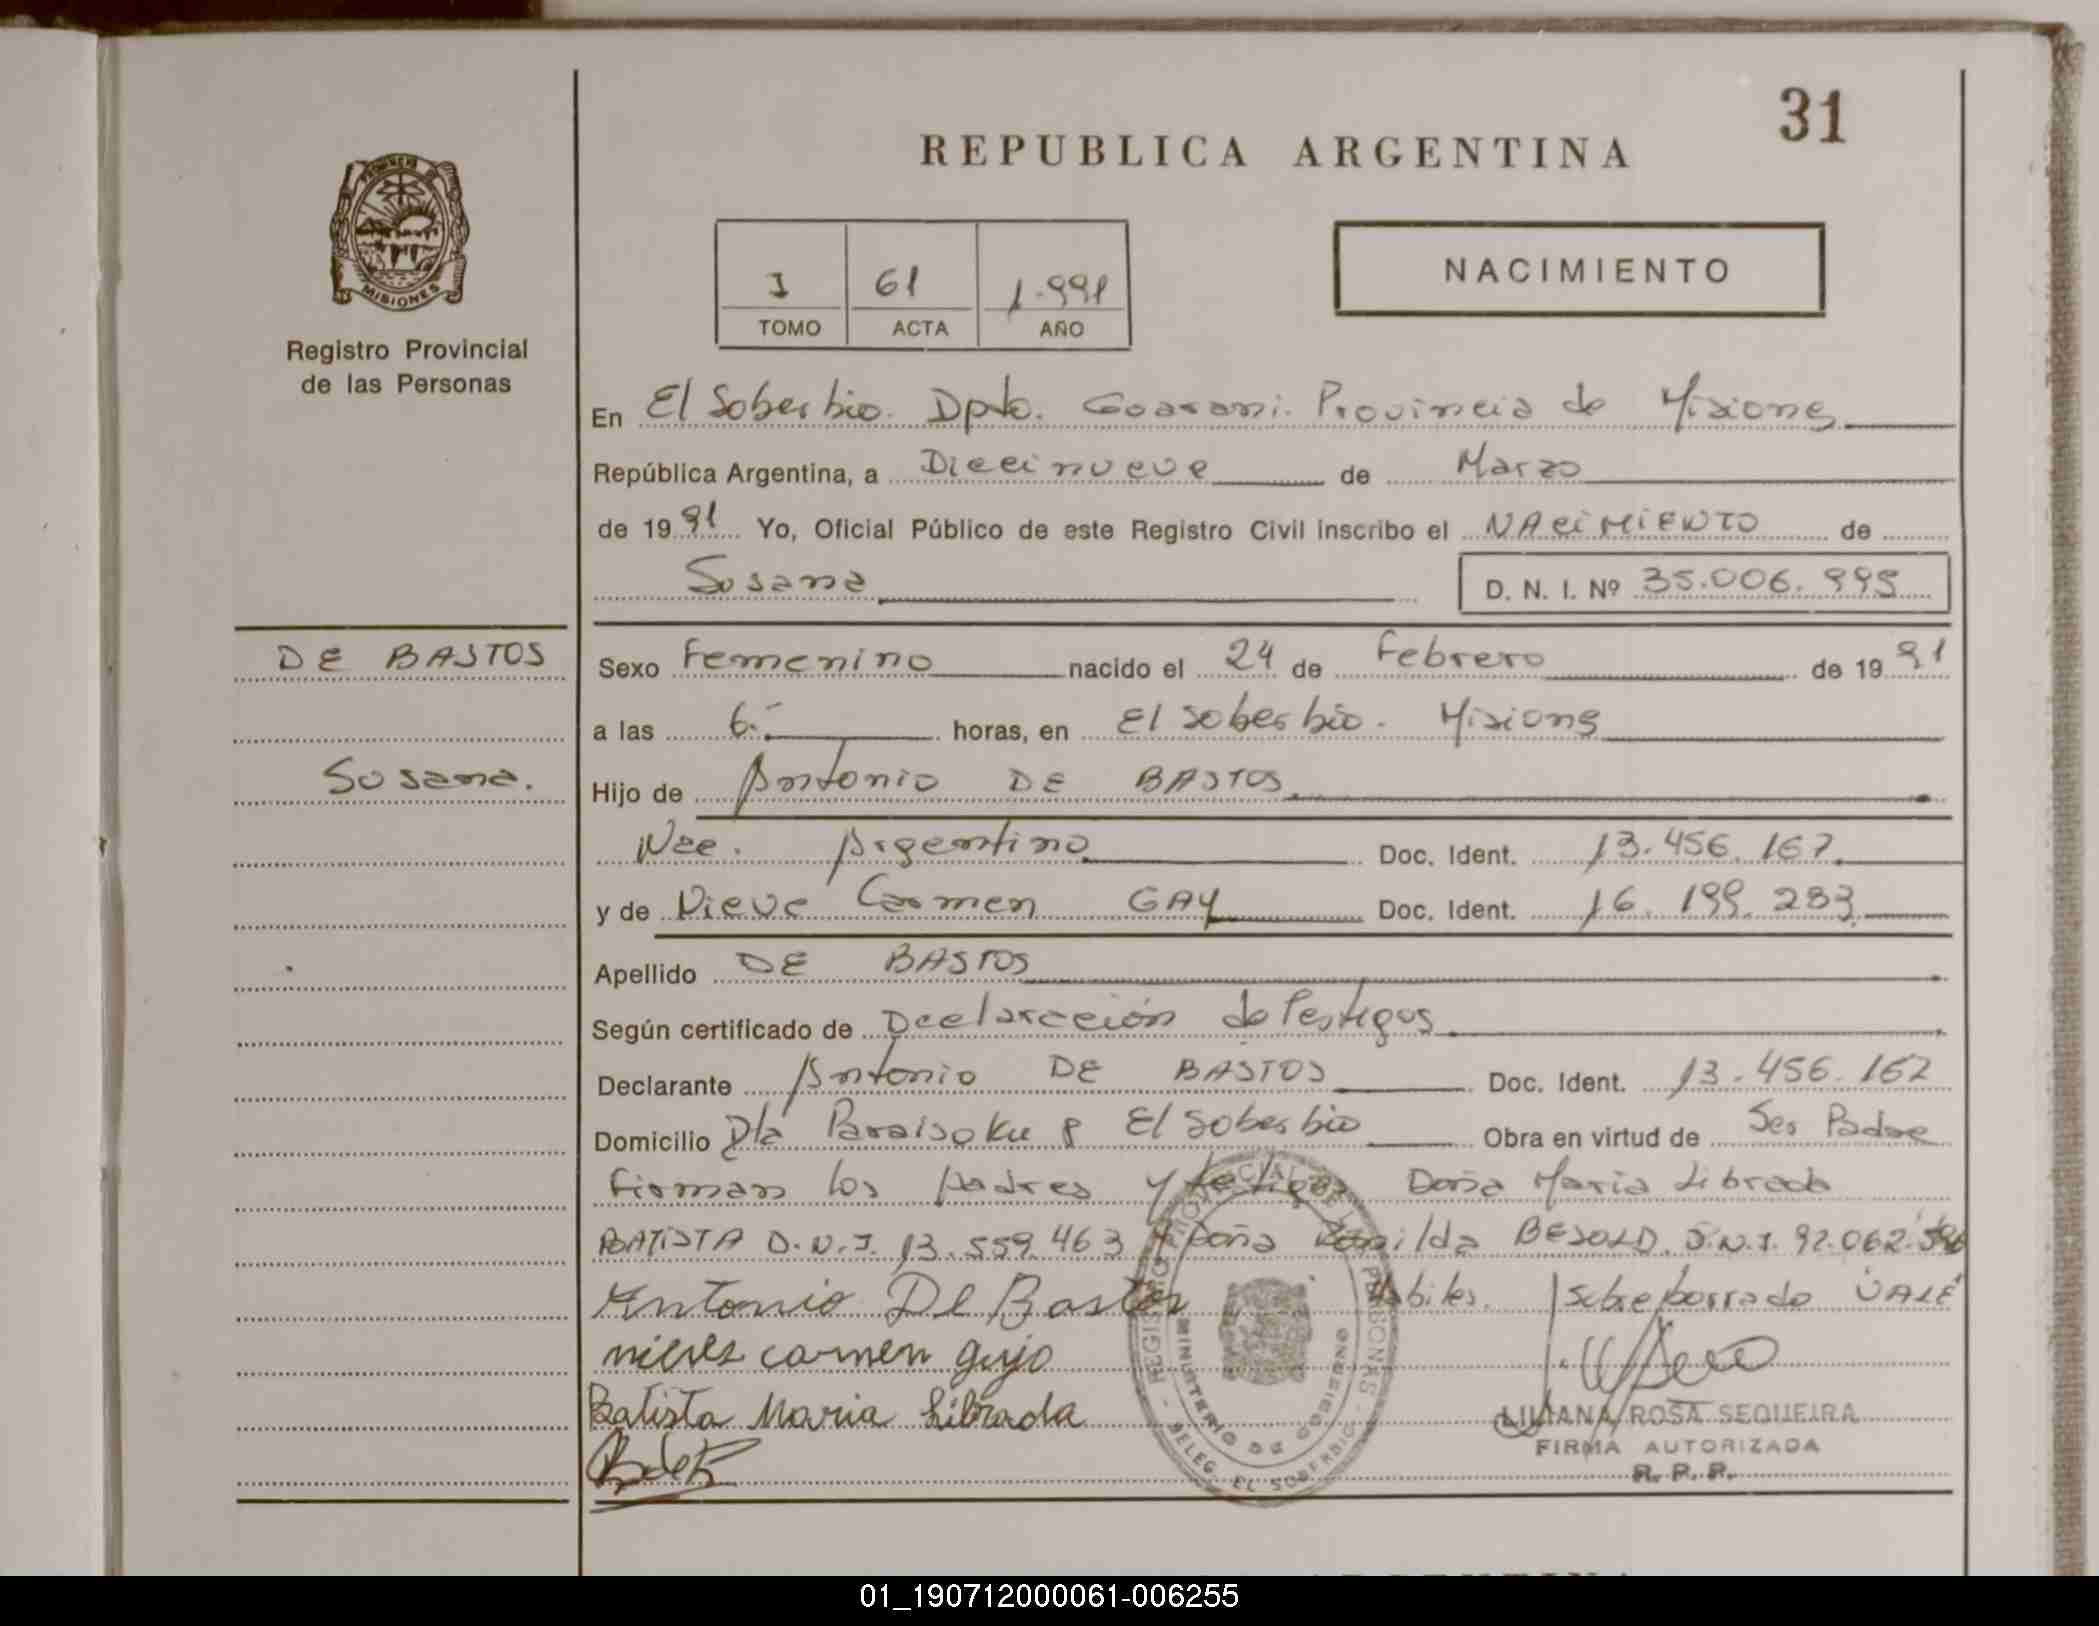 31
REPUBLICA ARGENTINA
PROVINCIA DE
MISIONES
Registro Provincial
de las Personas
I 61 1.991
TOMO ACTA AÑO
NACIMIENTO
En El Soberbio. Dpto. Guarani. Provincia de Misiones
República Argentina, a Diecinueve de Marzo
de 1991 Yo, Oficial Público de este Registro Civil inscribo el NACIMIENTO de
Susana D. N. I. Nº 35.006.995
DE BASTOS
Susana.
Sexo Femenino nacido el 24 de Febrero de 1991
a las 6.- horas, en El Soberbio. Misiones
Hijo de Antonio DE BASTOS
Nac. Argentino Doc. Ident. 13.456.167
y de Nieve Carmen GAY Doc. Ident. 16.199.283
Apellido DE BASTOS
Según certificado de Declaración de Testigos
Declarante Antonio DE BASTOS Doc. Ident. 13.456.167
Domicilio Pla Paraiso Km 8 El Soberbio Obra en virtud de Ser Padre
Firman los padres y testigos Doña Maria Librada
BATISTA D.N.I. 13.559.463 y Doña BESOLD. D.N.I. 92.062.596
Antonio De Bastos Habiles. Sobreborrado VALE
nieves carmen
Batista Maria Librada
REGISTRO PROVINCIAL DE LAS PERSONAS
MINISTERIO DE GOBIERNO
DELEG. EL SOBERBIO
LILIANA ROSA SEQUEIRA
FIRMA AUTORIZADA
R. P. P.
01_190712000061-006255